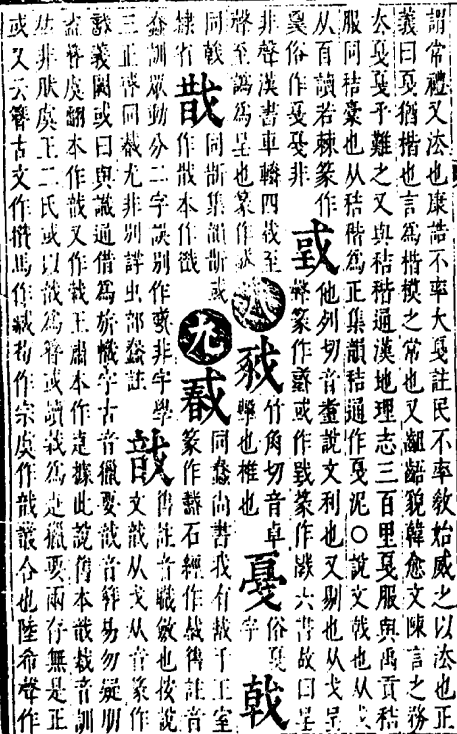 謂常禮又法也康誥不率大戛註民不率教始威之以法也正
義曰戛猶楷也言為楷模之常也又齟齬貌韓愈文陳言之務
去戛戛乎難之又與秸稭通漢地理志三百里戛服與禹貢秸
服同秸藁也从秸稭為正集韻秸通作戛泥○說文戟也从戈
从百讀若棘篆作
戛俗作戞戛非
或他列切音鐵說文利也又剔也从戈呈
聲篆作或作戥篆作六書故曰呈
非聲漢書車轔四载至
聲至譌為呈也篆作
八
㦻竹角切音卓
擊也椎也
戞俗戛
字
戟
同戟
隸省
戠同㫁集韻㫁或
作㪚本作
九
𢧢同蠢尚書我有𢧢于王室
篆作石經作𢧢傳註音
蠢訓眾動分二字誤别作非字學
三正蠢同𢧢尤非别詳虫部蠢註
戠舊註音職斂也按說
文戠从戈从音篆作
戠義闕或曰與識通借為旂幟字古音獵要戠音簪易勿疑朋
盍簪虞翻本作戠又作王肅本作據此說舊本戠音訓
並非肤虞王二氏或以戠為簪或讀為是獵要兩存無是正
或又云簪古文作撍馬作臧荀作宗虞作戠叢合也陸希聲作